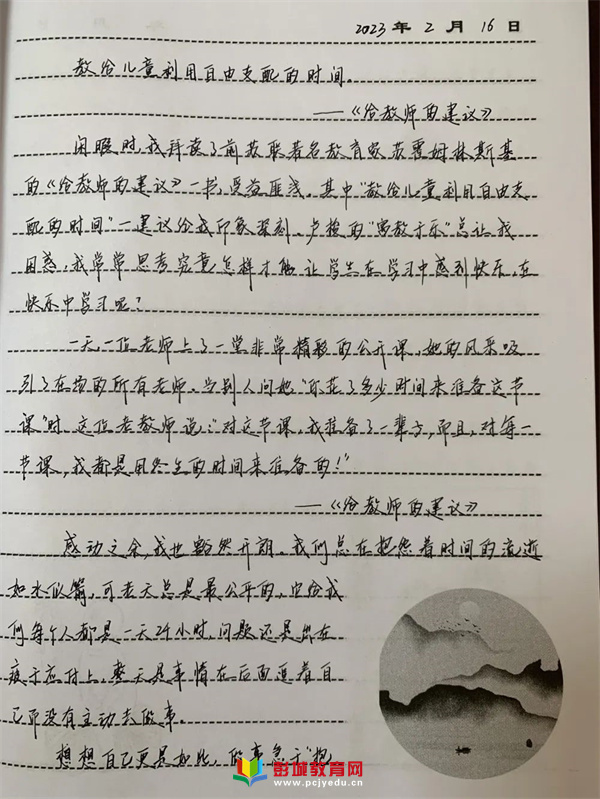 2023年2月16日
教给儿童利用自由支配的时间。
——《给教师的建议》
闲暇时,我拜读了前苏联著名教育家苏霍姆林斯基
的《给教师的建议》一书,受益匪浅。其中"教给儿童利用自由支
配的时间"一建议给我印象深刻。卢梭的"寓教于乐"总让我
困惑,我常常思考究竟怎样才能让学生在学习中感到快乐,在
快乐中学习呢?
一天,一位老师上了一堂非常精彩的公开课,她的风采吸
引了在场的所有老师。当别人问她"你花了多少时间来准备这节
课"时,这位老教师说:"对这节课,我准备了一辈子,而且,对每一
节课,我都是用终生的时间来准备的!"
——《给教师的建议》
感动之余,我也豁然开朗。我们总在抱怨着时间的流逝
如水似箭,可老天总是最公平的,它给我
们每个人都是一天24小时,问题还是出在
疲于应付上,整天是事情在后面追着自
己而没有主动去做事。
想想自己更是如此,做事急于"抱
彭城教育网
www.pcjyedu.cn